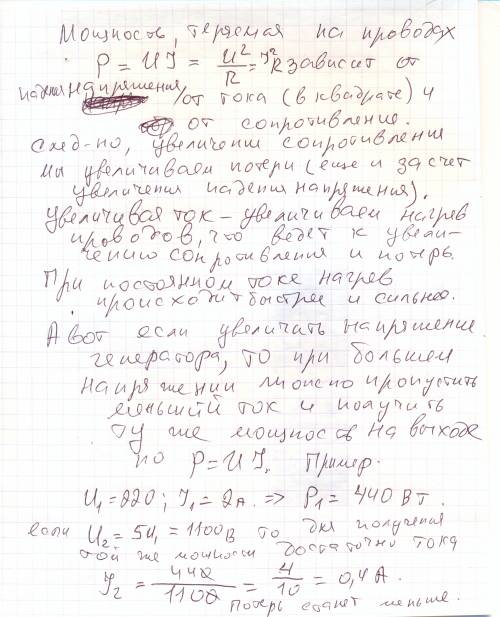 Мощность, теряемая на проводах
P = UI = U²/R = I²R зависит от
падения напряжения/от тока (в квадрате) и
от сопротивление.
След-но, увеличении сопротивления
мы увеличиваем потери (еще и за счет
увеличения падения напряжения).
Увеличивая ток – увеличиваем нагрев
проводов, что ведет к увели-
чению сопротивления и потерь.
При постоянном токе нагрев
происходит быстрее и сильнее.
А вот если увеличить напряжение
генератора, то при большем
напряжении можно пропустить
меньший ток и получить
ту же мощность на выходе
по P=UI. Пример.
U₁=220; I₁=2А. => P₁=440 Вт.
если U₂=5U₁=1100В то для получения
той же мощности достаточно тока
I₂ = 440/1100 = 4/10 = 0,4 А.
Потерь станет меньше.